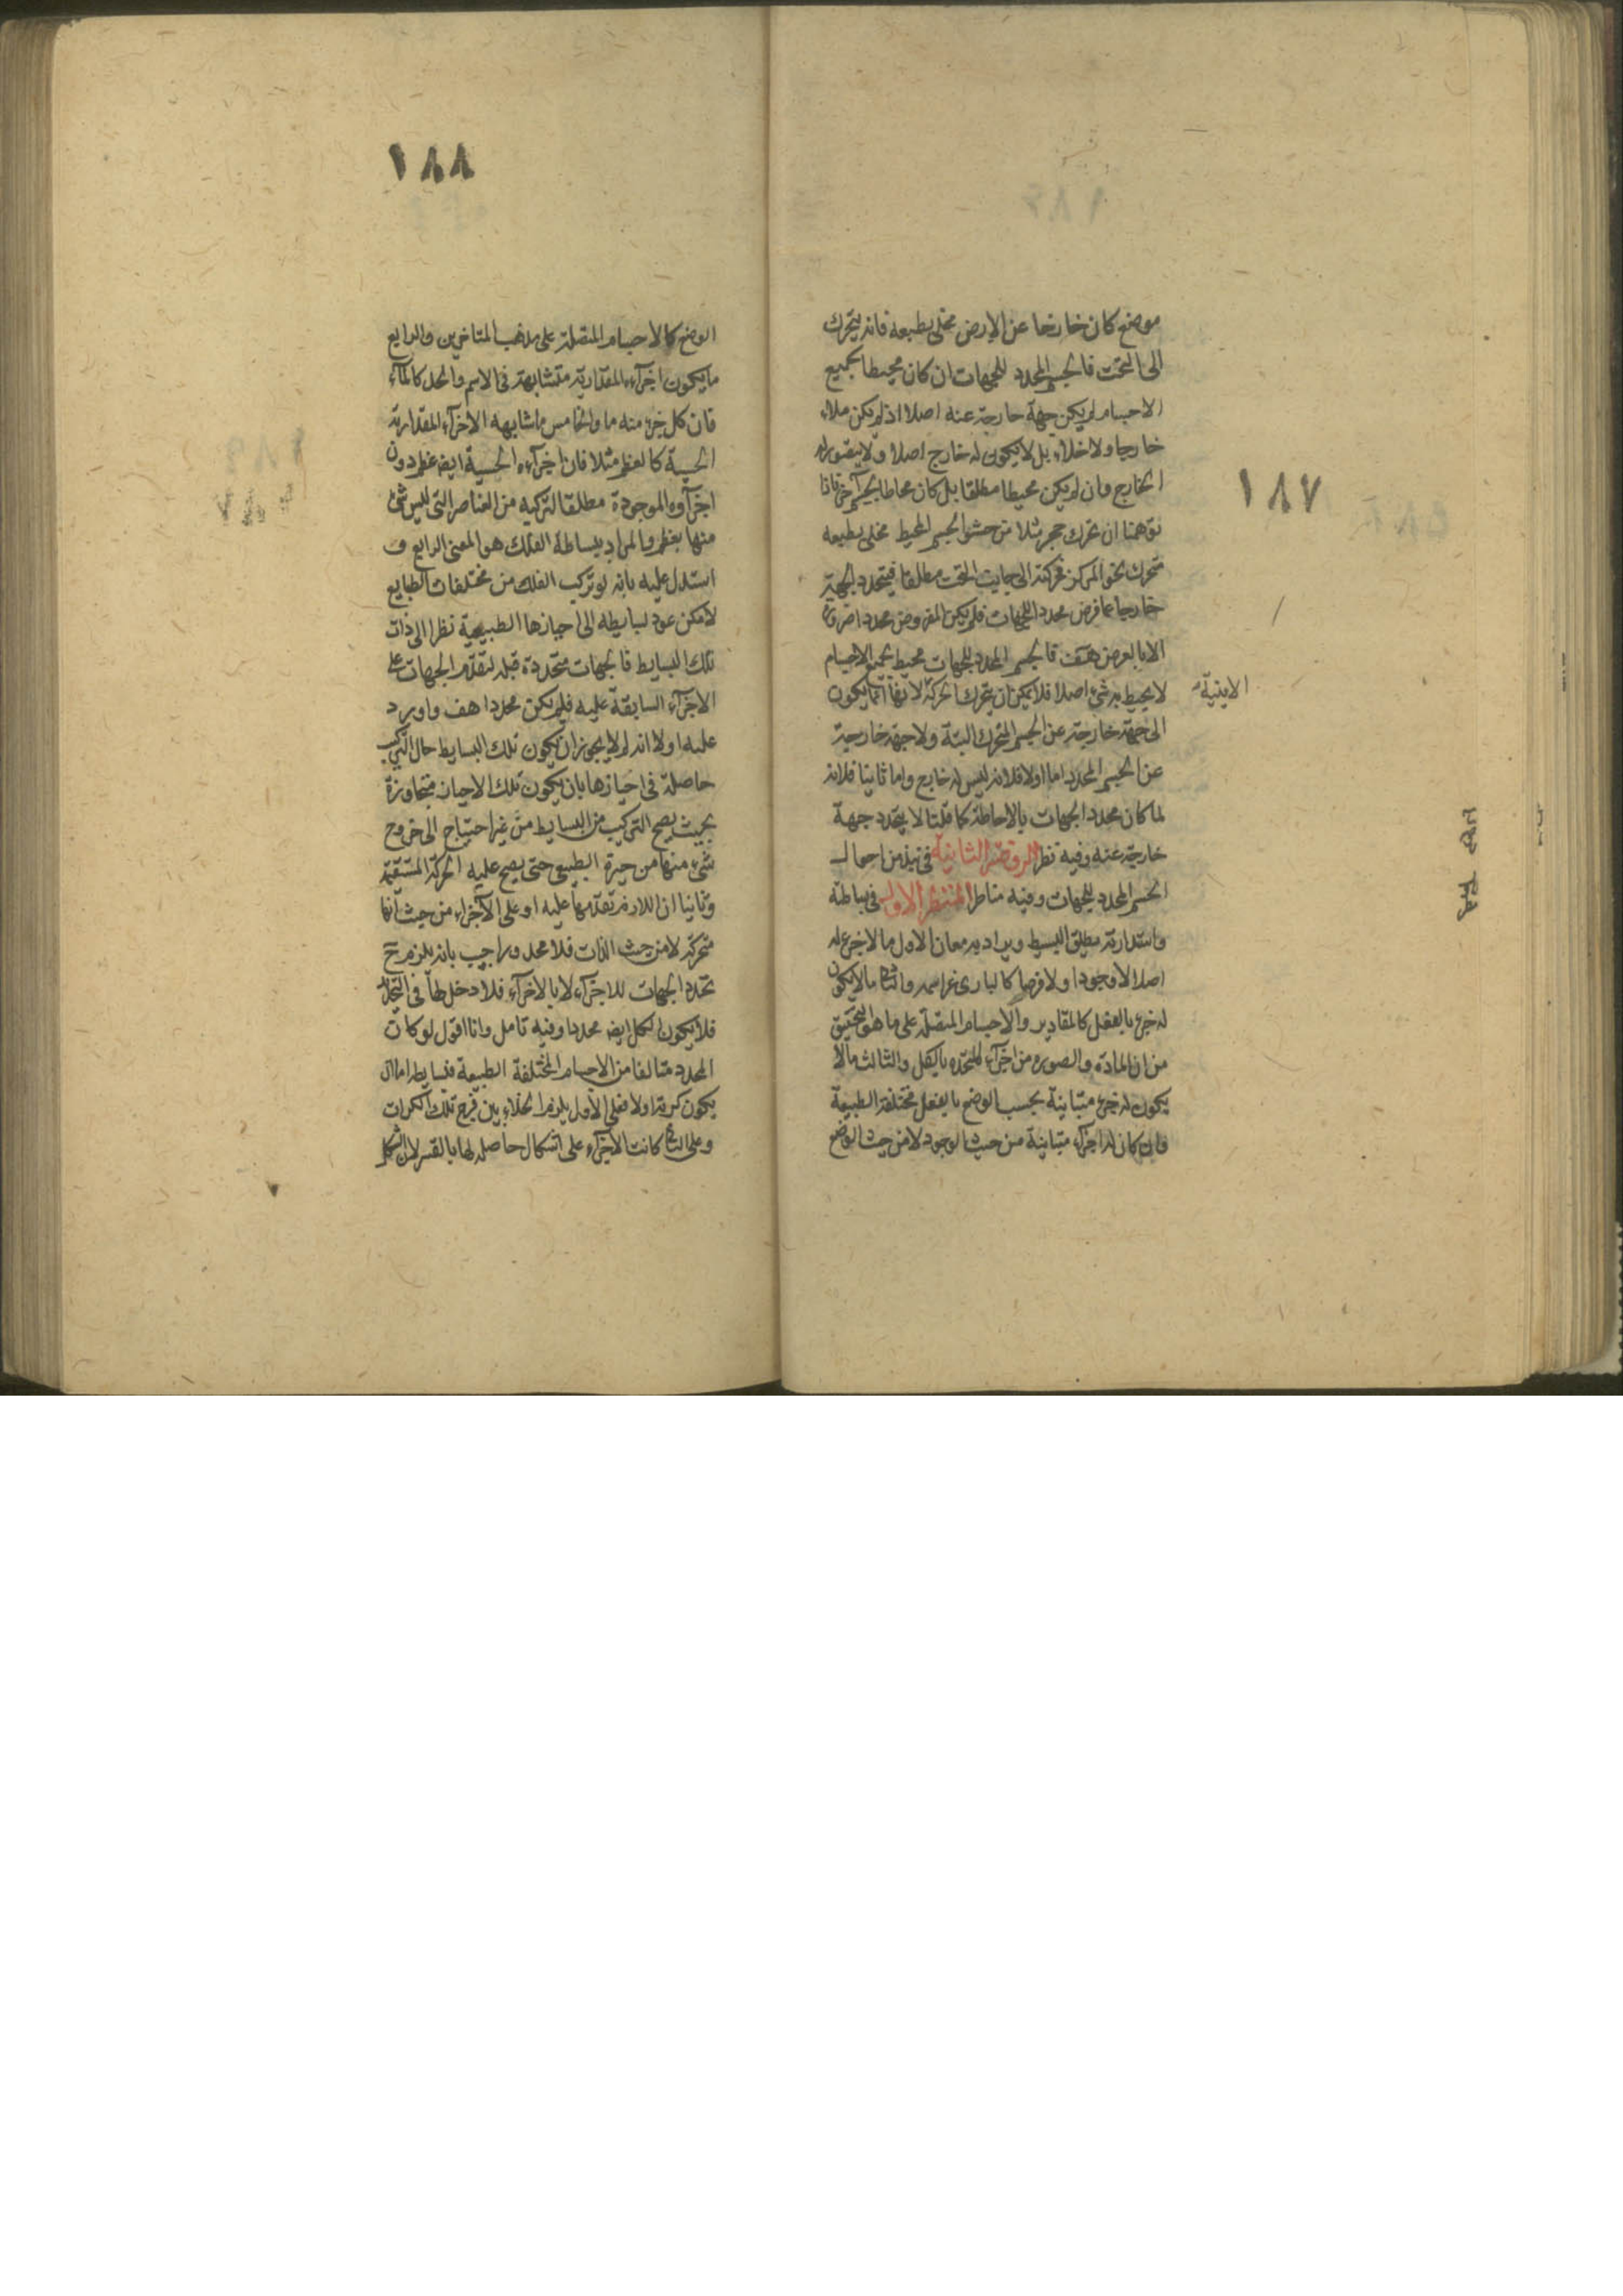 ١٨٧
موضع كان خارجا عن الارض مخلى بطبعه فانه يتحرك
الى التحت فالجسم المحدد للجهات ان كان محيطا بجميع
الاجسام لم يكن جهة خارجة عنه اصلا اذ لم يكن ملاء
خارجا ولا خلاء بل لا يكون له خارج اصلا ولا يتصور له
الخارج وان لم يكن محيطا مطلقا بل كان محاطا بجسم آخر فاذا
توهمنا ان تحرك حجر مثلا من حشو الجسم المحيط مخلى بطبعه
تحرك نحو المركز فحركته الى جانب التحت مطلقا فيتحدد الجهة
خارجا عما فرض محدد الجهات فلم يكن المفروض محددا
الا بالعرض هف فالجسم المحدد للجهات محيط بجميع الاجسام
لا يحيط به شئ اصلا فلا يمكن ان يتحرك الحركة لانها انما يكون
الاينية
الى جهة خارجة عن الجسم المتحرك البتة ولا جهة خارجة
عن الجسم المحدد اما اولا فلانه ليس له خارج واما ثانيا فلانه
لما كان محدد الجهات بالاحاطة كما قلنا لا يتحدد جهة
خارجة عنه وفيه نظر الروضة الثانية في نبذ من احوال
الجسم المحدد للجهات وفيه مناظر المنظر الاول في بساطته
واستدارته مطلق البسيط ويراد به معان الاول ما لا جزء له
اصلا لا وجودا ولا فرضا كالبارى عز اسمه والثانى ما لا يكون
له جزء بالفعل كالمقادير والاجسام المتصلة على ما هو التحقيق
من ان المادة والصورة من اجزاء المتحدة بالكل والثالث ما لا
يكون له جزء متباينة بحسب الوضع بالفعل مختلفة الطبيعة
وان كان له اجزاء متباينة من حيث الوجود لا من حيث الوضع
١٨٨
الوضع كالاجسام المتصلة على مذهب المتاخرين والرابع
ما يكون اجزاءه المقدارية متشابهة فى الاسم والحد كالماء
فان كل جزء منه ماء والخامس ما شابهه الاجزاء المقدارية
الحسية كالعظم مثلا فان اجزاءه الحسية ايض عظم دون
اجزاؤه الموجودة مطلقا لتركبه من العناصر التى ليس شئ
منها بعظم والمراد ببساطة الفلك هو المعنى الرابع و
استدل عليه بانه لو تركب الفلك من مختلفات الطبايع
لامكن عود بسايطه الى احيازها الطبيعية نظرا الى ذات
تلك البسايط فالجهات متحددة قبله لتقدم الجهات على
الاجزاء السابقة عليه فلم يكن محددا هف واورد
عليه اولا انه لم لا يجوز ان يكون تلك البسايط حال التركيب
حاصلة فى احيازها بان يكون تلك الاحياز متجاوزة
بحيث يصح التركيب من البسايط من غير احتياج الى خروج
شئ منها من حيزه الطبيعى حتى يصح عليه الحركة المستقيمة
وثانيا ان اللازم تقدمها عليه او على الاجزاء من حيث انها
متحركة لا من حيث الذات فلا محدد واجيب بانه يلزم ح
تحدد الجهات للاجزاء لا بالاجزاء فلا دخل لها فى التحدد
فلا يكون لكل ايض محددا وفيه تامل وانا اقول لو كان
المحدد متالفا من الاجسام المختلفة الطبيعة فبسايطه اما ان
يكون كرية اولا فعلى الاول يلزم الخلاء بين فرج تلك الكرات
وعلى الثانى كانت الاجزاء على اشكال حاصلة لها بالقسر لان الشكل